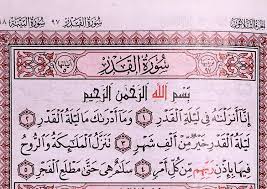 الجزء الثلاثون سُورَةُ القَدْر ٩٧ سُورَةُ البَيِّنَة
سُورَةُ القَدْرِ
بِسْمِ اللَّهِ الرَّحْمَٰنِ الرَّحِيمِ
إِنَّا أَنزَلْنَٰهُ فِي لَيْلَةِ الْقَدْرِ ١ وَمَا أَدْرَىٰكَ مَا لَيْلَةُ الْقَدْرِ ٢
لَيْلَةُ الْقَدْرِ خَيْرٌ مِّنْ أَلْفِ شَهْرٍ ٣ تَنَزَّلُ الْمَلَٰٓئِكَةُ وَالرُّوحُ
فِيهَا بِإِذْنِ رَبِّهِم مِّن كُلِّ أَمْرٍ ٤ سَلَٰمٌ هِيَ حَتَّىٰ مَطْلَعِ الْفَجْرِ ٥